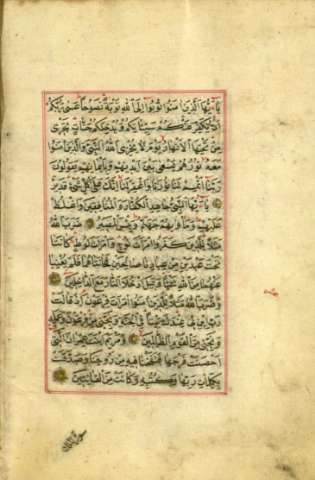 يَا أَيُّهَا الَّذِينَ آمَنُوا تُوبُوا إِلَى اللَّهِ تَوْبَةً نَصُوحًا عَسَىٰ رَبُّكُمْ
أَنْ يُكَفِّرَ عَنْكُمْ سَيِّئَاتِكُمْ وَيُدْخِلَكُمْ جَنَّاتٍ تَجْرِي
مِنْ تَحْتِهَا الْأَنْهَارُ يَوْمَ لَا يُخْزِي اللَّهُ النَّبِيَّ وَالَّذِينَ آمَنُوا
مَعَهُ نُورُهُمْ يَسْعَىٰ بَيْنَ أَيْدِيهِمْ وَبِأَيْمَانِهِمْ يَقُولُونَ
رَبَّنَا أَتْمِمْ لَنَا نُورَنَا وَاغْفِرْ لَنَا إِنَّكَ عَلَىٰ كُلِّ شَيْءٍ قَدِيرٌ
يَا أَيُّهَا النَّبِيُّ جَاهِدِ الْكُفَّارَ وَالْمُنَافِقِينَ وَاغْلُظْ
عَلَيْهِمْ وَمَأْوَاهُمْ جَهَنَّمُ وَبِئْسَ الْمَصِيرُ ضَرَبَ اللَّهُ
مَثَلًا لِلَّذِينَ كَفَرُوا امْرَأَتَ نُوحٍ وَامْرَأَتَ لُوطٍ كَانَتَا
تَحْتَ عَبْدَيْنِ مِنْ عِبَادِنَا صَالِحَيْنِ فَخَانَتَاهُمَا فَلَمْ يُغْنِيَا
عَنْهُمَا مِنَ اللَّهِ شَيْئًا وَقِيلَ ادْخُلَا النَّارَ مَعَ الدَّاخِلِينَ
وَضَرَبَ اللَّهُ مَثَلًا لِلَّذِينَ آمَنُوا امْرَأَتَ فِرْعَوْنَ إِذْ قَالَتْ
رَبِّ ابْنِ لِي عِنْدَكَ بَيْتًا فِي الْجَنَّةِ وَنَجِّنِي مِنْ فِرْعَوْنَ وَعَمَلِهِ
وَنَجِّنِي مِنَ الْقَوْمِ الظَّالِمِينَ وَمَرْيَمَ ابْنَتَ عِمْرَانَ الَّتِي
أَحْصَنَتْ فَرْجَهَا فَنَفَخْنَا فِيهِ مِنْ رُوحِنَا وَصَدَّقَتْ
بِكَلِمَاتِ رَبِّهَا وَكُتُبِهِ وَكَانَتْ مِنَ الْقَانِتِينَ